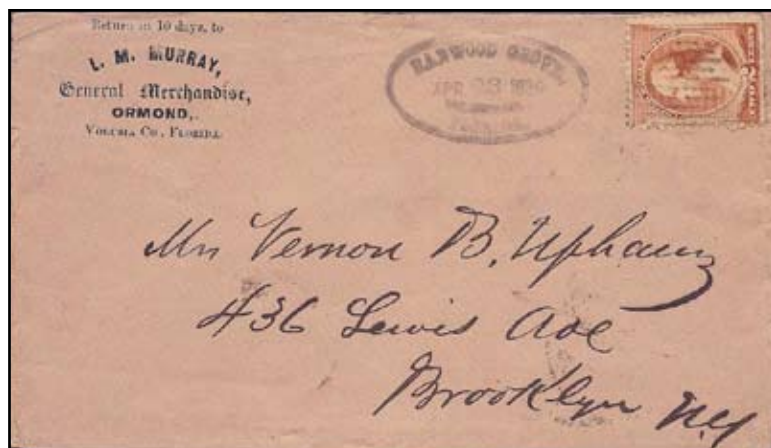 Return in 10 days, to
L. M. MURRAY,
General Merchandise,
ORMOND,
VOLUSIA CO., FLORIDA.
HARWOOD GROVE,
APR 23
FLORIDA.
Mrs Vernon B. Upham
436 Lewis Ave
Brooklyn NY